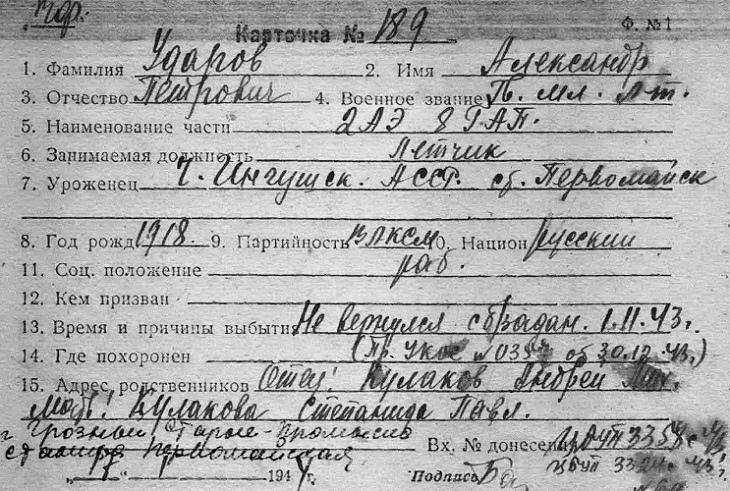 Карточка № 189 Ф. №1
1. Фамилия Ударов 2. Имя Александр
3. Отчество Петрович 4. Военное звание Гв. мл. л-т.
5. Наименование части 2АЭ 8 ГАП.
6. Занимаемая должность летчик
7. Уроженец Ч. Ингушск. АССР. ст. Первомайск
8. Год рожд 1918. 9. Партийность ВЛКСМ 10. Национ русский
11. Соц. положение раб.
12. Кем призван
13. Время и причины выбытия Не вернулся с б/задан. 1.11.43г.
14. Где похоронен (Пр. от 30.12.43г.)
15. Адрес родственников Отец: Кулаков Андрей Мих.
Мать: Кулакова Степанида Павл.
г. Грозный, Старые-промысла
станица Первомайская Вх. № донесения
194 г. Подпись